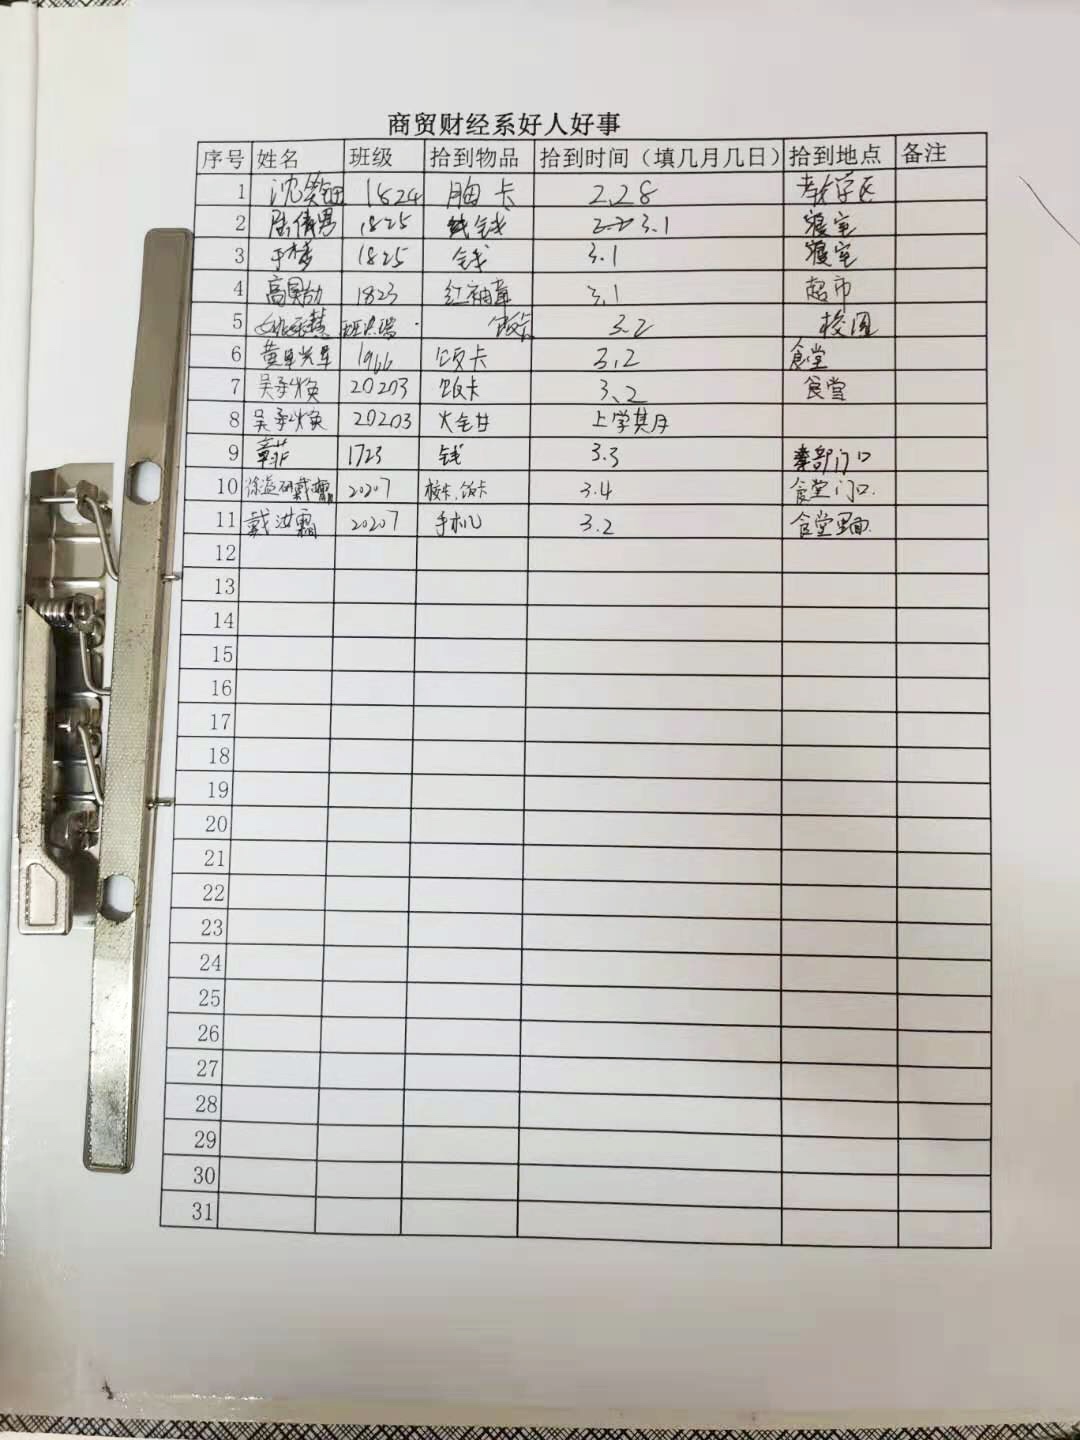 商贸财经系好人好事
序号 姓名 班级 拾到物品 拾到时间（填几月几日） 拾到地点 备注
1 1824 胸卡 2.28
2 1825 钱 3.1 寝室
3 1825 钱 3.1 寝室
4 1823 红袖章 3.1 超市
5 饭卡 3.2 校园
6 1966 饭卡 3.2 食堂
7 吴承焕 20203 饭卡 3.2 食堂
8 吴承焕 20203 上学期
9 章菲 1723 钱 3.3 门口
10 20207 校卡、饭卡 3.4 食堂门口.
11 戴洪霜 20207 手机 3.2 食堂里面.
12
13
14
15
16
17
18
19
20
21
22
23
24
25
26
27
28
29
30
31